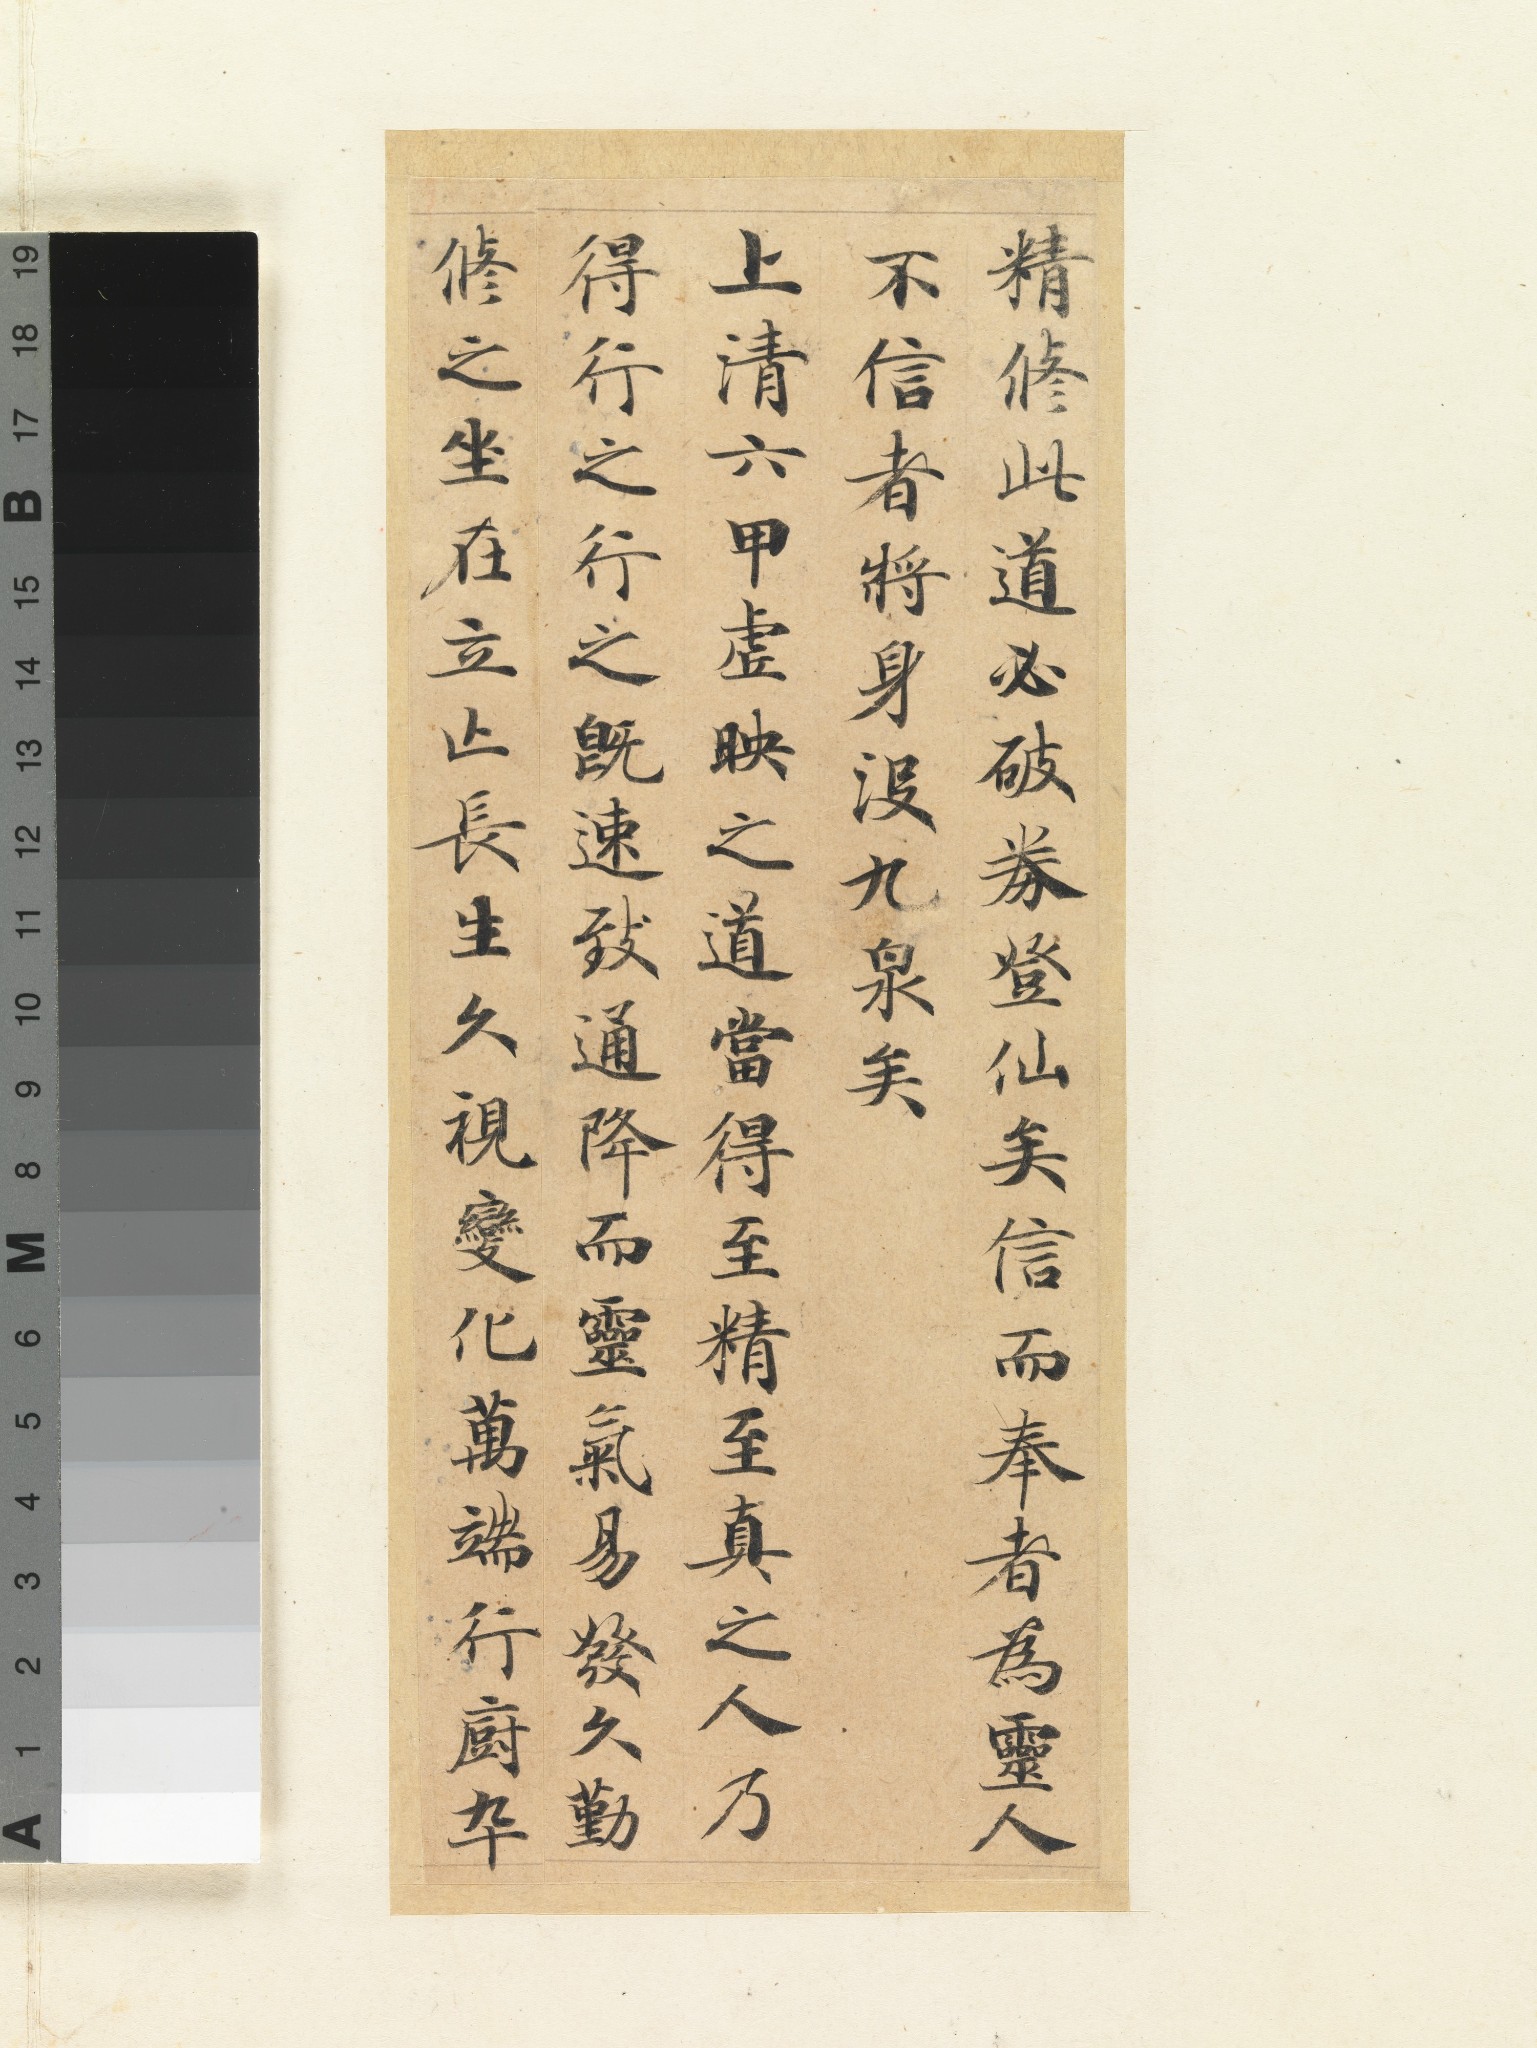 精修此道必破券登仙矣信而奉者為靈人
不信者將身沒九泉矣
上清六甲虛映之道當得至精至真之人乃
得行之行之既速致通降而靈氣易發久勤
修之坐在立亡長生久視變化萬端行廚卒
19
18
17
B
15
14
13
12
11
10
9
8
M
6
5
4
3
2
1
A